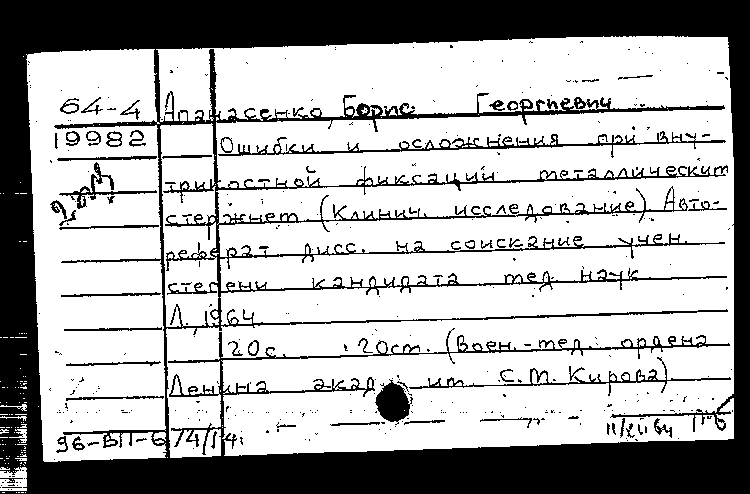 64-4 Апанасенко, Борис Георгиевич
19982 Ошибки и осложнения при вну-
трикостной фиксации металлическим
стержнем (Клинич. исследование) Авто-
реферат дисс. на соискание учен.
степени кандидата мед. наук
Л., 1964.
20с. 20см. (Воен.-мед. ордена
Ленина акад. им. С.М. Кирова)
96-ВП-6 74/14